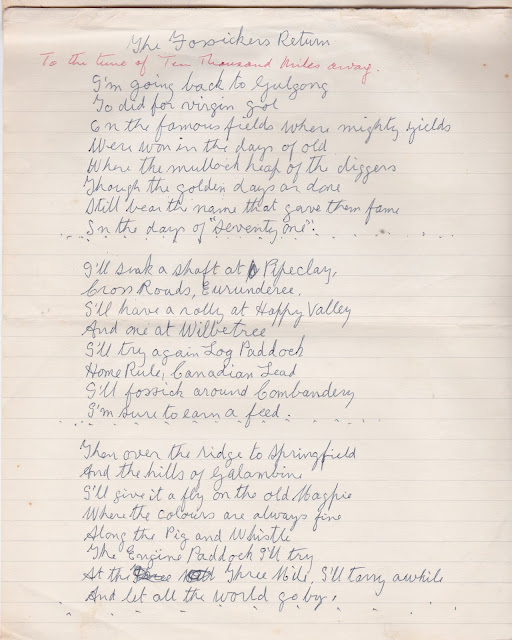 The Fossickers Return
To the tune of Ten Thousand Miles away.
I'm going back to Gulgong
To did for virgin gol
On the famous fields where mighty yields
Were won in the days of old
Where the mullock heap of the diggers
Though the golden days ar done
Still bear the name that gave them fame
In the days of "Seventy one".
I'll sink a shaft at Pipeclay,
Cross Roads, Eurunderee.
I'll have a rally at Happy Valley
And one at Wilbetree
I'll try again Log Paddock
Home Rule, Canadian Lead
I'll fossick around Combandery
I'm sure to earn a feed.
Then over the ridge to Springfield
And the hills of Galambine
I'll give it a fly on the old Magpie
Where the colours are always fine
Along the Pig and Whistle
The Engine Paddock I'll try
At the Three Mile, I'll tarry awhile
And let all the world go by.